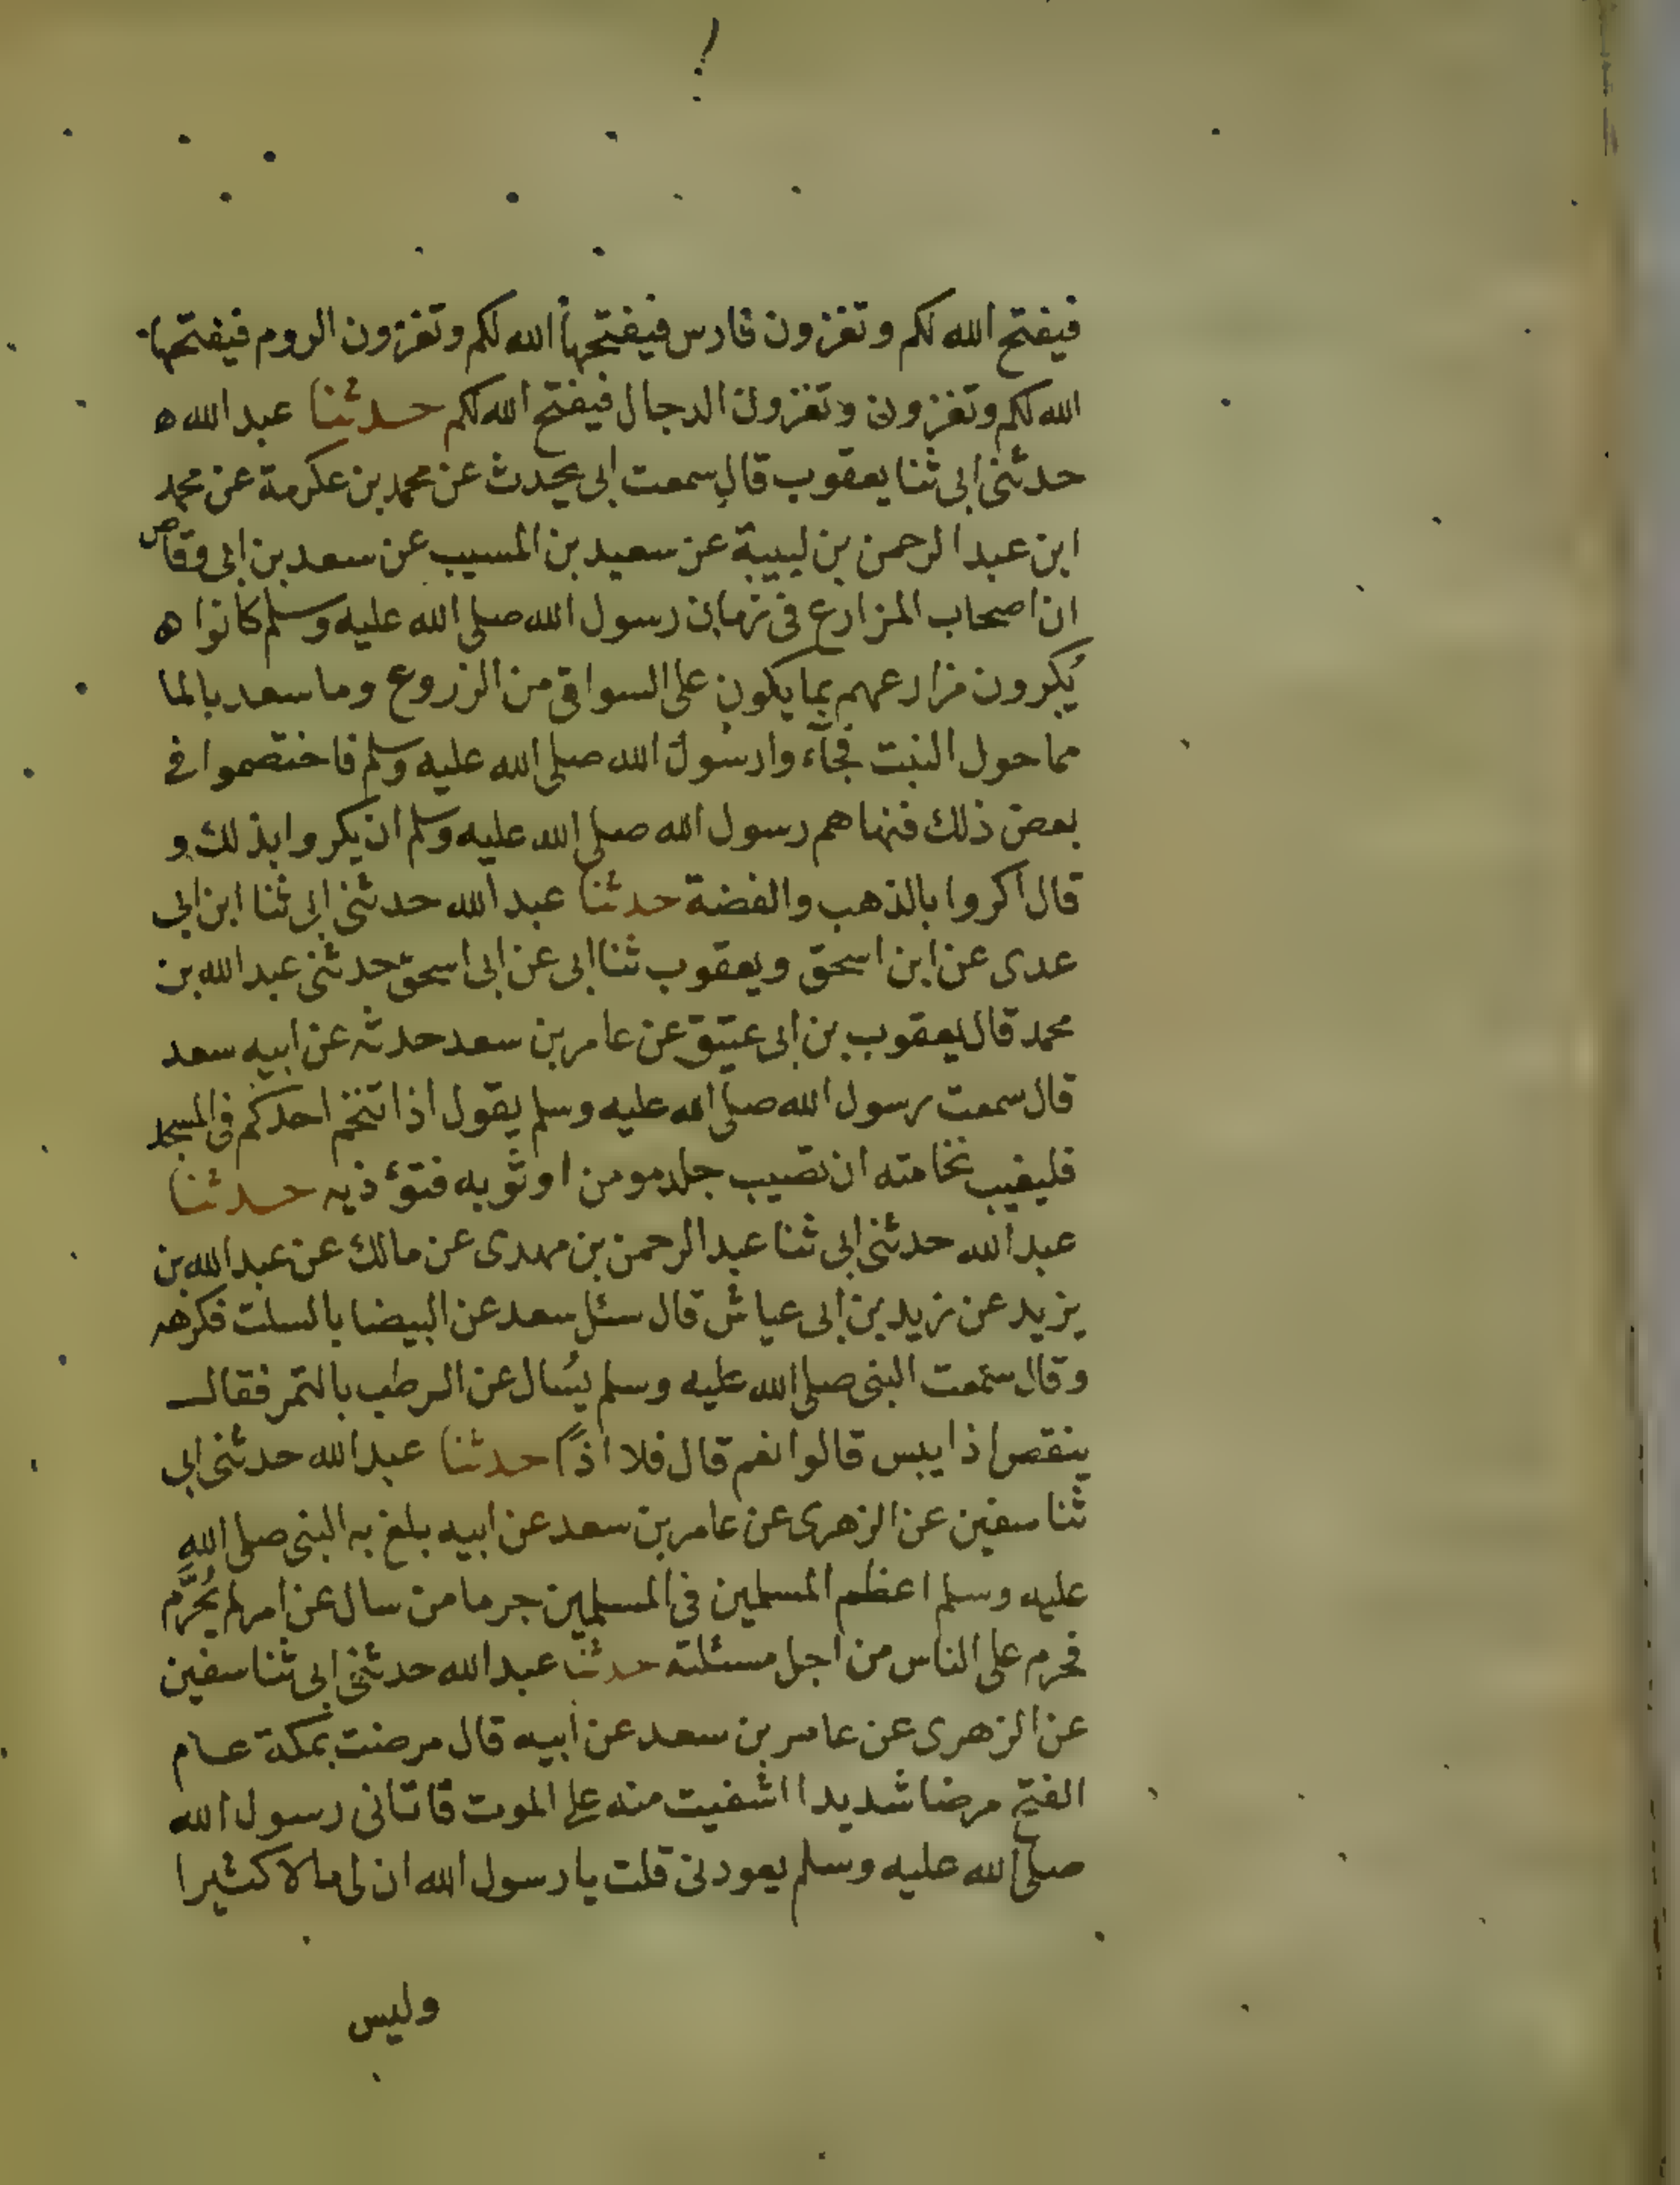 فيفتح الله لكم وتغزون فارس فيفتحها الله لكم وتغزون الروم فيفتحها
الله لكم وتغزون وتغزون الدجال فيفتح الله لكم حدثنا عبد الله ه
حدثني ابى ثنا يعقوب قال سمعت ابى يحدث عن محمد بن عكرمة عن محمد
ابن عبد الرحمن بن لبيبة عن سعيد بن المسيب عن سعد بن ابى وقاص
ان اصحاب المزارع فى زمان رسول الله صلى الله عليه وسلم كانوا ه
يُكرون مزارعهم بما يكون على السواقى من الزروع وما سعد بالما
مما حول النبت فجآء وا رسول الله صلى الله عليه وسلم فاختصموا فى
بعض ذلك فنهاهم رسول الله صلى الله عليه وسلم ان يكروا بذلك و
قال اكروا بالذهب والفضة حدثنا عبد الله حدثنى ابى ثنا ابن ابى
عدى عن ابن اسحق ويعقوب ثنا ابى عن ابى اسحق حدثنى عبد الله بن
محمد قال يعقوب بن ابى عتيق عن عامر بن سعد حدثه عن ابيه سعد
قال سمعت رسول الله صلى الله عليه وسلم يقول اذا تنخم احدكم فى المسجد
فليغيب نخامته ان تصيب جلد مومن او ثوبه فتؤذيه حدثنا
عبد الله حدثنى ابى ثنا عبد الرحمن بن مهدى عن مالك عن عبد الله بن
يزيد عن زيد بن ابى عياش قال سئل سعد عن البيضا بالسلت فكرهه
وقال سمعت النبى صلى الله عليه وسلم يُسال عن الرطب بالتمر فقال
ينقص اذا يبس قالوا نعم قال فلا اذًا حدثنا عبد الله حدثنى ابى
ثنا سفين عن الزهرى عن عامر بن سعد عن ابيه بلغ به النبى صلى الله
عليه وسلم اعظم المسلمين فى المسلمين جرما من سال عن امر لم يُحَرَّم
فحرم على الناس من اجل مسئلته حدثنا عبد الله حدثنى ابى ثنا سفين
عن الزهرى عن عامر بن سعد عن ابيه قال مرضت بمكة عام
الفتح مرضا شديدا اشفيت منه على الموت فاتانى رسول الله
صلى الله عليه وسلم يعودنى قلت يا رسول الله ان لى مالا كثيرا
وليس